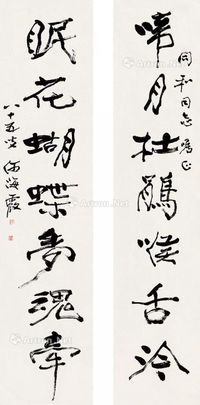 同和同志嘱正
啼月杜鵑喉舌冷
眠花蝴蝶夢魂牽
八十五叟何海霞